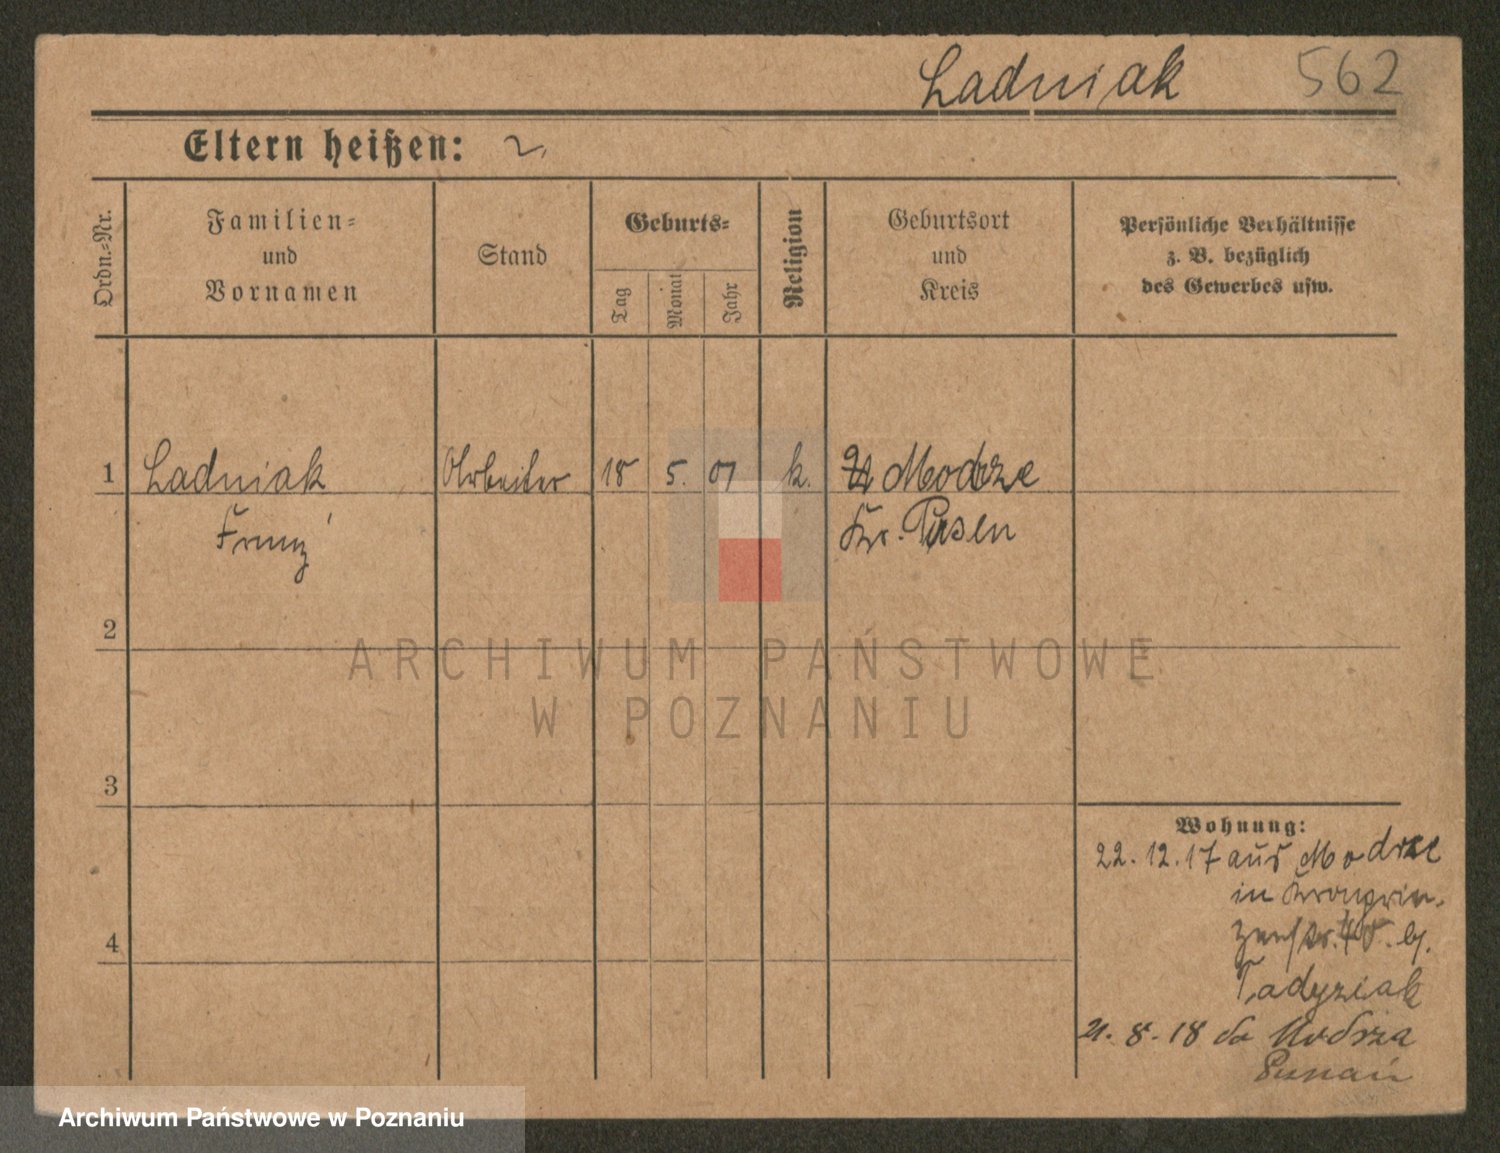 Ladniak 562
Eltern heißen:
Ordn.-Nr.
Familien-
und
Vornamen
Stand
Geburts-
Tag
Monat
Jahr
Religion
Geburtsort
und
Kreis
Persönliche Verhältnisse
z. B. bezüglich
des Gewerbes usw.
1 Ladniak Arbeiter 18 5. 01 k. Modrze
Franz Kr. Posen
2
3
4
Wohnung:
22.12.17 aus Modrze
in Kronprin-
zenstr. b/.
Tadyziak
21.8.18 do Modrza
Poznań
ARCHIWUM PAŃSTWOWE
W POZNANIU
Archiwum Państwowe w Poznaniu